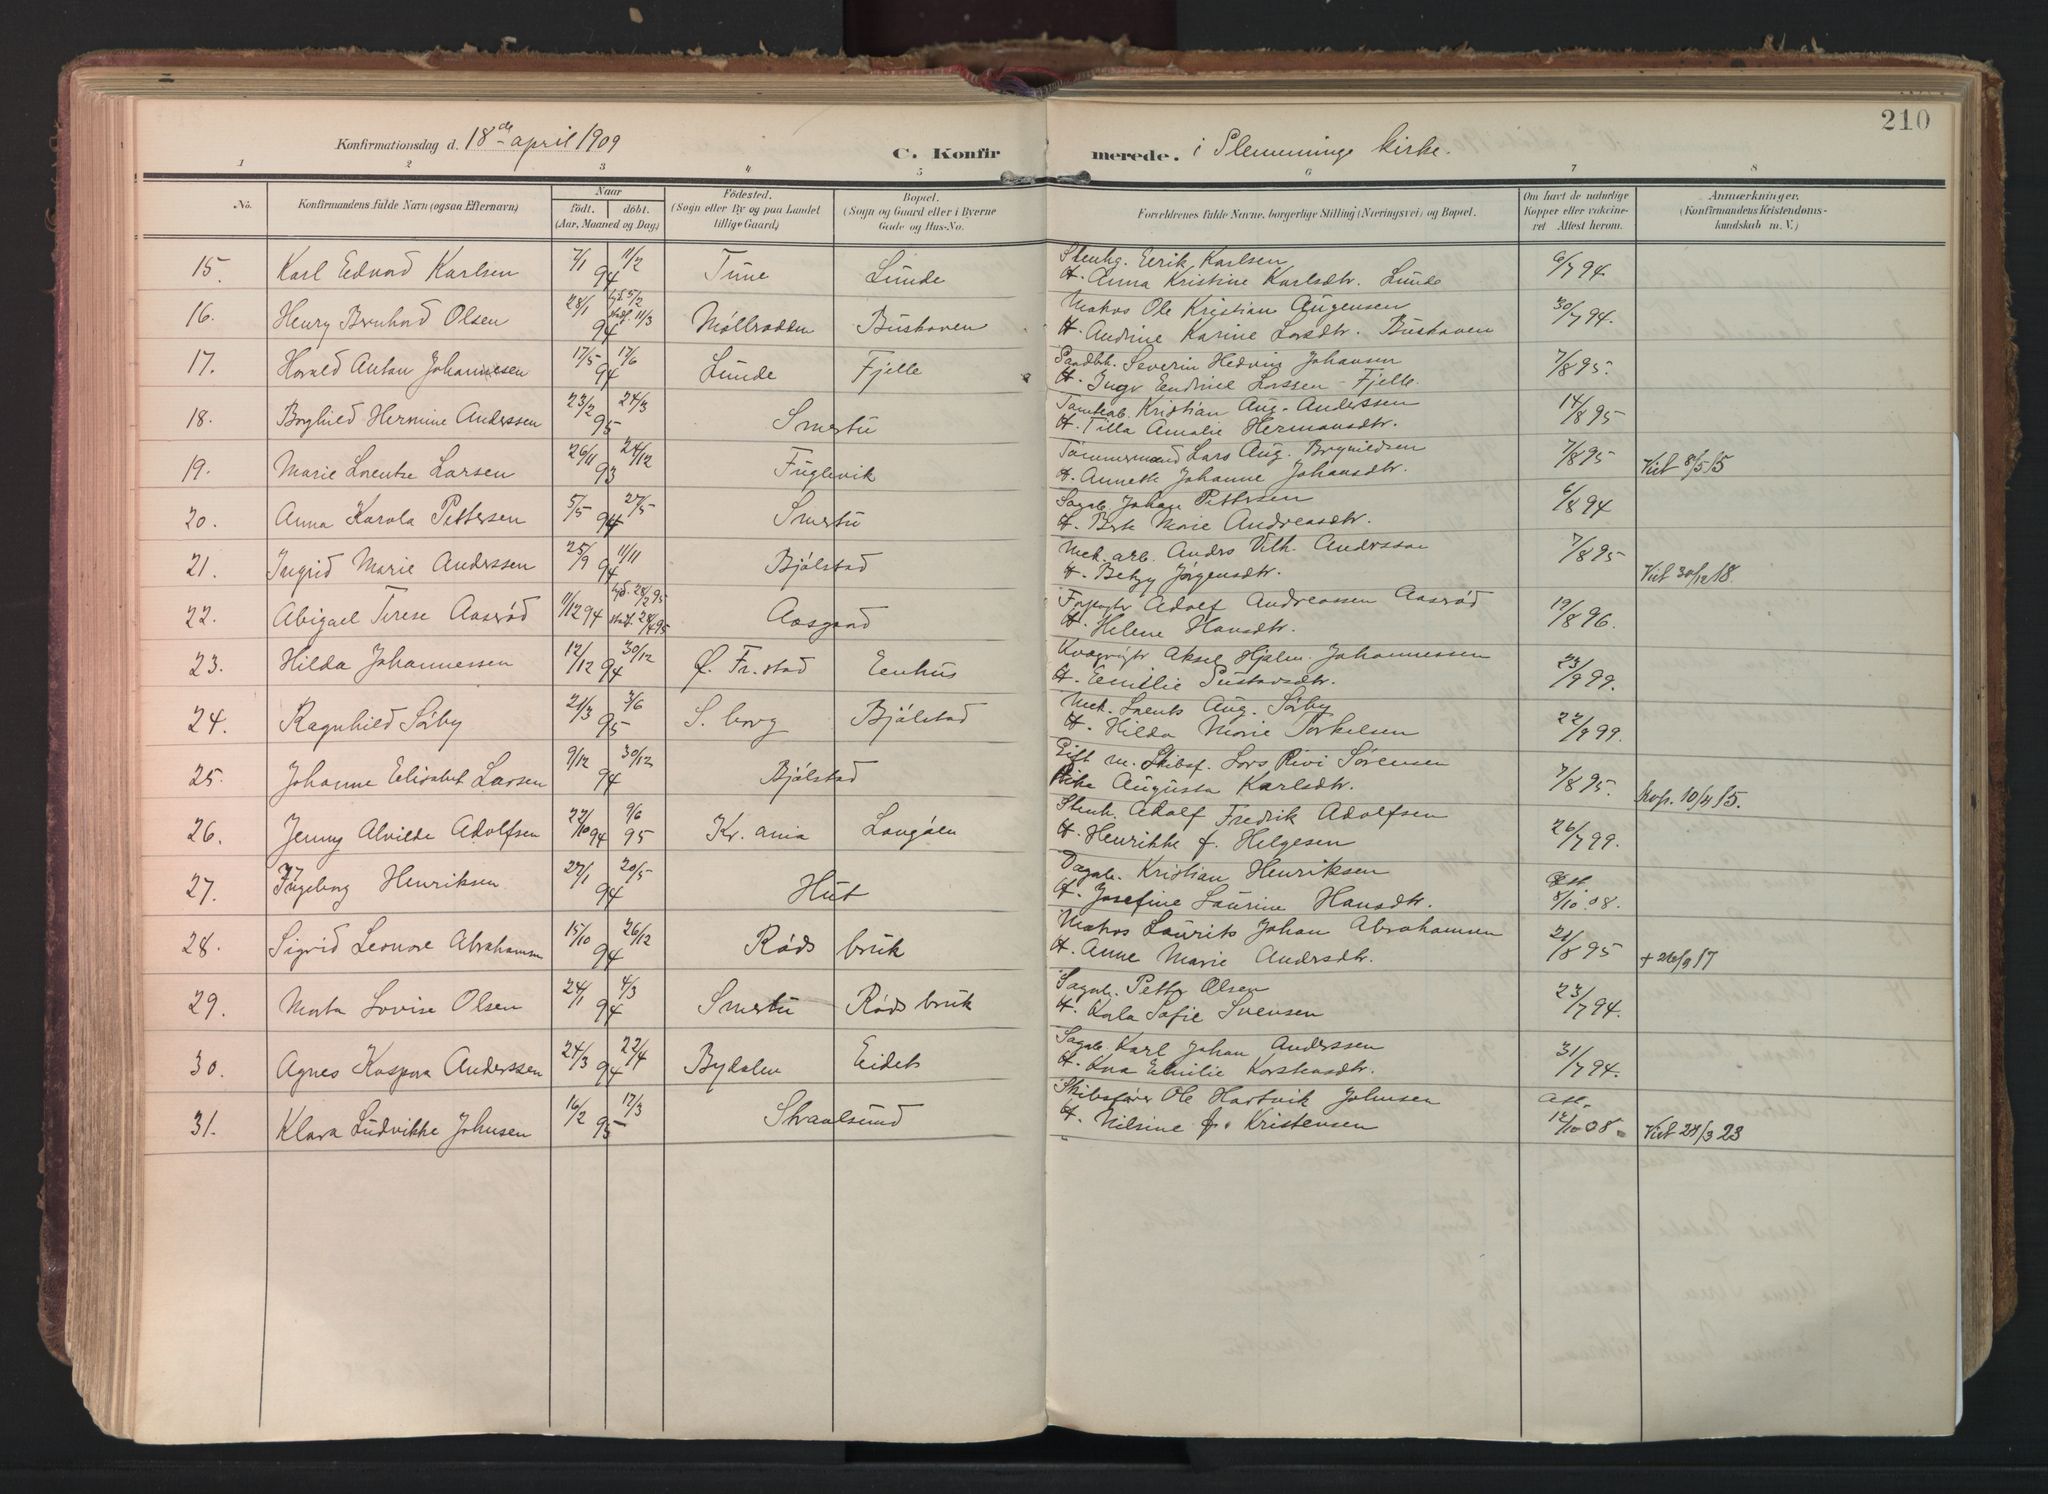 210
Konfirmationsdag d. 18de april 1909
C. Konfirmerede. i Slemminge kirke.
1 2 3 4 5 6 7 8
No.
Konfirmandens fulde Navn (ogsaa Efternavn)
Naar
født. døbt.
(Aar, Maaned og Dag)
Fødested.
(Sogn eller By og paa Landet
tillige Gaard)
Bopæl.
(Sogn og Gaard eller i Byerne
Gade og Hus-No.
Forældrenes fulde Navne, borgerlige Stilling (Næringsvei) og Bopæl.
Om havt de naturlige
Kopper eller vakcine-
ret Attest herom.
Anmærkninger.
(Konfirmandens Kristendoms-
kundskab m. V.)
15. Karl Edvard Karlsen 7/1 94 11/2 Tune Lunde Stenhg. Eerik Karlsen 6/7 94
H. Anna Kristine Karlsdtr. Lunde
16. Henry Bernhard Olsen 28/1 94 hjd. 5/2 stadf. 11/3 Møllrodden Buskoven Matros Ole Kristian Augensen 30/7 94.
H. Andrine Karine Larsdtr. Buskoven
17. Harald Anton Johannesen 17/5 94 17/6 Lunde Fjelle Severin Hedvin Johansen 7/8 95.
H. Larssen - Fjelle.
18. Borghild Hermine Anderssen 23/2 95 24/3 Smertu Tomtearb. Kristian Aug. Anderssen 14/8 95
H. Tilla Amalie Hermansdtr.
19. Marie Lorentse Larsen 26/11 93 24/12 Fuglevik Tømmermand Lars Aug. Brynildsen 7/8 95 Viet 8/5 15
H. Annette Johanne Johansdtr.
20. Anna Karola Pettersen 5/5 94 27/5 Smertu Sagarb. Johan Pettersen 6/8 94
H. Berte Marie Andreasdtr.
21. Ingrid Marie Anderssen 25/9 94 11/11 Bjølstad Mek. arb. Anders Vilh. Anderssen 7/8 95 Viet 30/12 18.
H. Betzy Jørgensdtr.
22. Abigael Terese Aasrød 11/12 94 hjd. 28/2 95 stadf. 28/4 95 Aasgaard Adolf Andreassen Aasrød 19/8 96.
H. Helene Hansdtr.
23. Hilda Johannessen 12/12 94 30/12 Ø. Fr.stad Eenhus Aksel Hjalm. Johannessen 23/9 99.
H. Emilie Gustavsdtr.
24. Ragnhild Sørby 21/3 95 3/6 S. borg Bjølstad Mek. Lorents Aug. Sørby 22/9 99.
H. Hilda Marie Torkelsen
25. Johanne Elisabet Larsen 9/12 94 30/12 Bjølstad Gift m. Skibsf. Lars Sørensen 7/8 95. Kop. 10/4 15.
Pike Augusta Karlsdtr.
26. Jenny Alvilde Adolfsen 22/10 94 9/6 95 Kr. ania Langøen Stenh. Adolf Fredrik Adolfsen 26/7 99.
H. Henrikke f. Helgesen
27. Ingeborg Henriksen 27/1 94 20/5 Hut Dagarb. Kristian Henriksen att. 8/10 08.
H. Josefine Laurine Hansdtr.
28. Sigrid Leonore Abrahamsen 15/10 94 26/12 Røds bruk Matros Laurits Johan Abrahamsen 21/8 95 + 26/9 17
H. Anne Marie Andersdtr.
29. Marta Lovise Olsen 24/1 94 4/3 Smertu Røds bruk Sagarb. Petter Olsen 23/7 94.
H. Karla Sofie Svensen
30. Agnes Kaspara Anderssen 24/3 94 22/4 Bydalen Eidet Sagarb. Karl Johan Anderssen 31/7 94.
H. Eva Emilie Karstensdtr.
31. Klara Ludvikke Johnsen 16/2 95 17/3 Straalsund Skibsfører Ole Hartvik Johnsen att. 12/10 08. Viet 24/3 23
H. Nilsine f. Kristensen